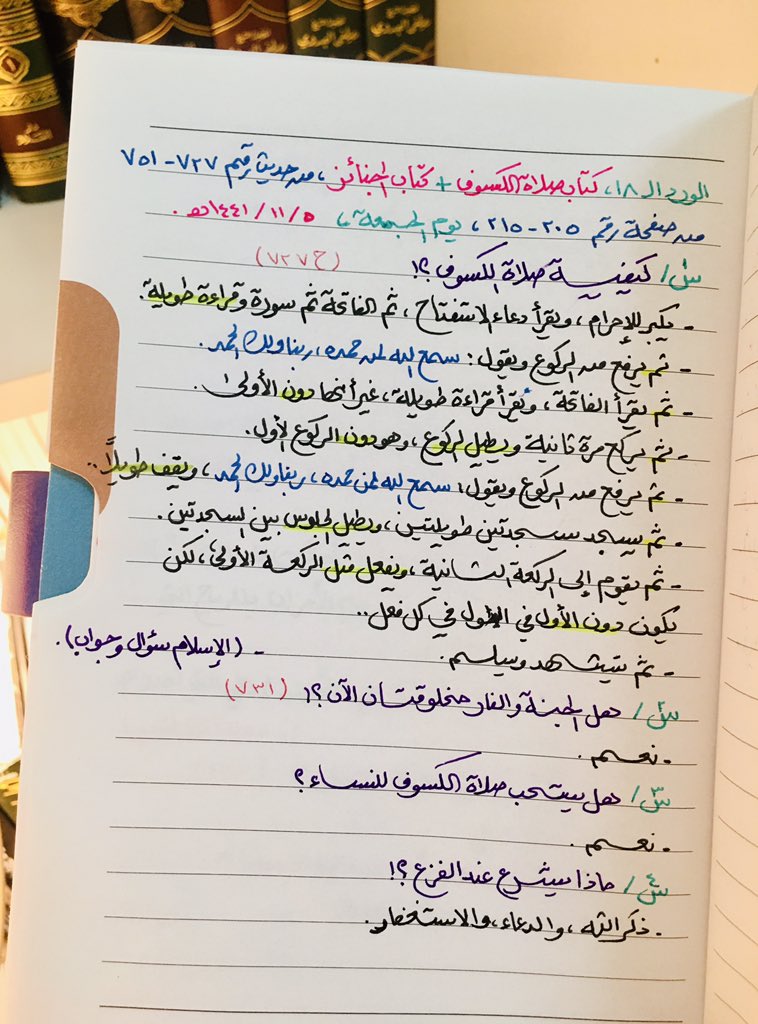 الورد الـ ١٨، كتاب صلاة الكسوف + كتاب الجنائز، من حديث رقم ٧٢٧ - ٧٥١
من صفحة رقم ٢٠٥ - ٢١٥، يوم الجمعة، ٥ / ١١ / ١٤٤١هـ.
س١/ كيفية صلاة الكسوف؟! (ح ٧٢٧)
- يكبر للإحرام، ويقرأ دعاء الاستفتاح، ثم الفاتحة ثم سورة وقراءة طويلة.
- ثم يرفع من الركوع ويقول: سمع الله لمن حمده، ربنا ولك الحمد.
- ثم يقرأ الفاتحة، ويقرأ قراءة طويلة، غير أنها دون الأولى.
- ثم يركع مرة ثانية ويطيل الركوع، وهو دون الركوع الأول.
- ثم يرفع من الركوع ويقول: سمع الله لمن حمده، ربنا ولك الحمد، ويقف طويلًا..
- ثم يسجد سجدتين طويلتين، ويطيل الجلوس بين السجدتين.
- ثم يقوم إلى الركعة الثانية، ويفعل مثل الركعة الأولى، لكن
يكون دون الأول في الطول في كل فعل..
- ثم يتشهد ويسلم. - (الإسلام سؤال وجواب).
س٢/ هل الجنة والنار مخلوقتان الآن؟! (٧٣١)
- نعم.
س٣/ هل يستحب صلاة الكسوف للنساء؟
- نعم.
س٤/ ماذا يشرع عند الفزع؟!
- ذكر الله، والدعاء، والاستغفار.